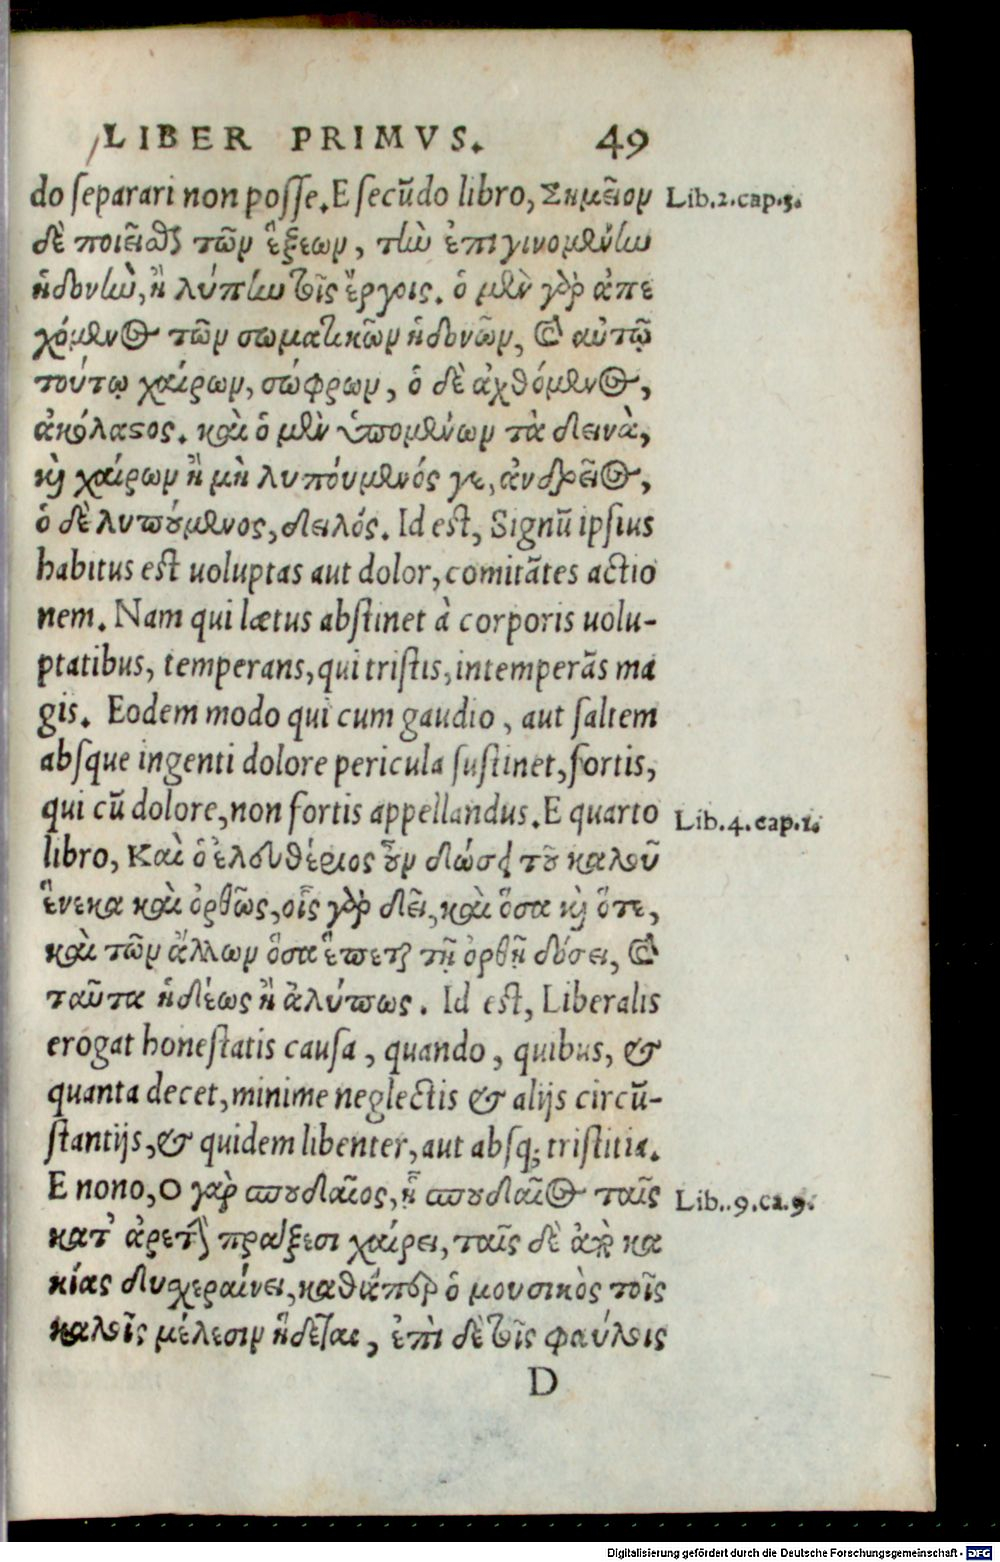 LIBER PRIMVS. 49
do separari non posse. E secũdo libro, Σημεῖον Lib.2.cap.3.
δὲ ποιεῖσθαι τῶν ἕξεων, τὴν ἐπιγινομένην
ἡδονὴν, ἢ λύπην τοῖς ἔργοις. ὁ μὲν γὰρ ἀπε
χόμενος τῶν σωματικῶν ἡδονῶν, καὶ αὐτῷ
τούτῳ χαίρων, σώφρων, ὁ δὲ ἀχθόμενος,
ἀκόλαστος. καὶ ὁ μὲν ὑπομένων τὰ δεινὰ,
καὶ χαίρων ἢ μὴ λυπόυμενός γε, ἀνδρεῖος,
ὁ δὲ λυπούμενος, δειλός. Id est, Signũ ipsius
habitus est uoluptas aut dolor, comitãtes actio
nem. Nam qui lætus abstinet à corporis uolu-
ptatibus, temperans, qui tristis, intemperãs ma
gis. Eodem modo qui cum gaudio, aut saltem
absque ingenti dolore pericula sustinet, fortis,
qui cũ dolore, non fortis appellandus. E quarto Lib.4.cap.1.
libro, Καὶ ὁ ἐλευθέριος οὖν δώσει τοῦ καλοῦ
ἕνεκα καὶ ὀρθῶς, οἷς γὰρ δεῖ, καὶ ὅσα καὶ ὅτε,
καὶ τῶν ἄλλων ὅσα ἕπεται τῇ ὀρθῇ δόσει, καὶ
ταῦτα ἡδέως ἢ ἀλύπως. Id est, Liberalis
erogat honestatis causa, quando, quibus, &
quanta decet, minime neglectis & alijs circũ-
stantijs, & quidem libenter, aut absq; tristitia.
E nono, Ο γὰρ σπουδαῖος, ᾗ σπουδαῖος ταῖς Lib..9.ca.9.
κατ᾽ ἀρετὴν πράξεσι χαίρει, ταῖς δὲ ἀπὸ κα
κίας δυχεραίνει, καθάπερ ὁ μουσικὸς τοῖς
καλοῖς μέλεσιν ἥδεται, ἐπὶ δὲ τοῖς φαύλοις
D
Digitalisierung gefördert durch die Deutsche Forschungsgemeinschaft - DFG